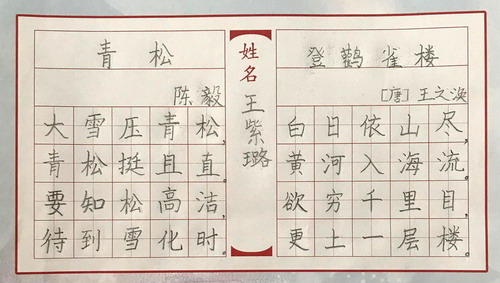 青松
陈毅
大雪压青松，
青松挺且直。
要知松高洁，
待到雪化时。
姓名
王紫璐
登鹳雀楼
[唐]王之涣
白日依山尽，
黄河入海流。
欲穷千里目，
更上一层楼。